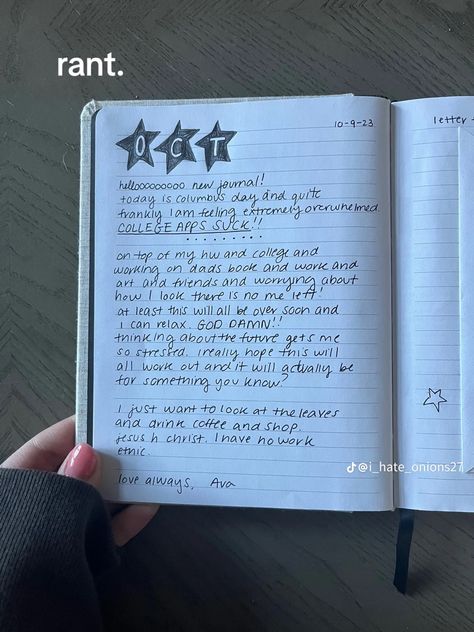 rant.
OCT
10-9-23
hellooooooooo new journal!
today is columbus day and quite
frankly I am feeling extremely overwhelmed.
COLLEGE APPS SUCK!!
on top of my hw and college and
working on dads book and work and
art and friends and worrying about
how I look there is no me left!
at least this will all be over soon and
I can relax. GOD DAMN!!
thinking about the future gets me
so stressed. I really hope this will
all work out and it will actually be
for something you know?
I just want to look at the leaves
and drink coffee and shop.
jesus h christ. I have no work
ethic.
love always, Ava
letter
@i_hate_onions27